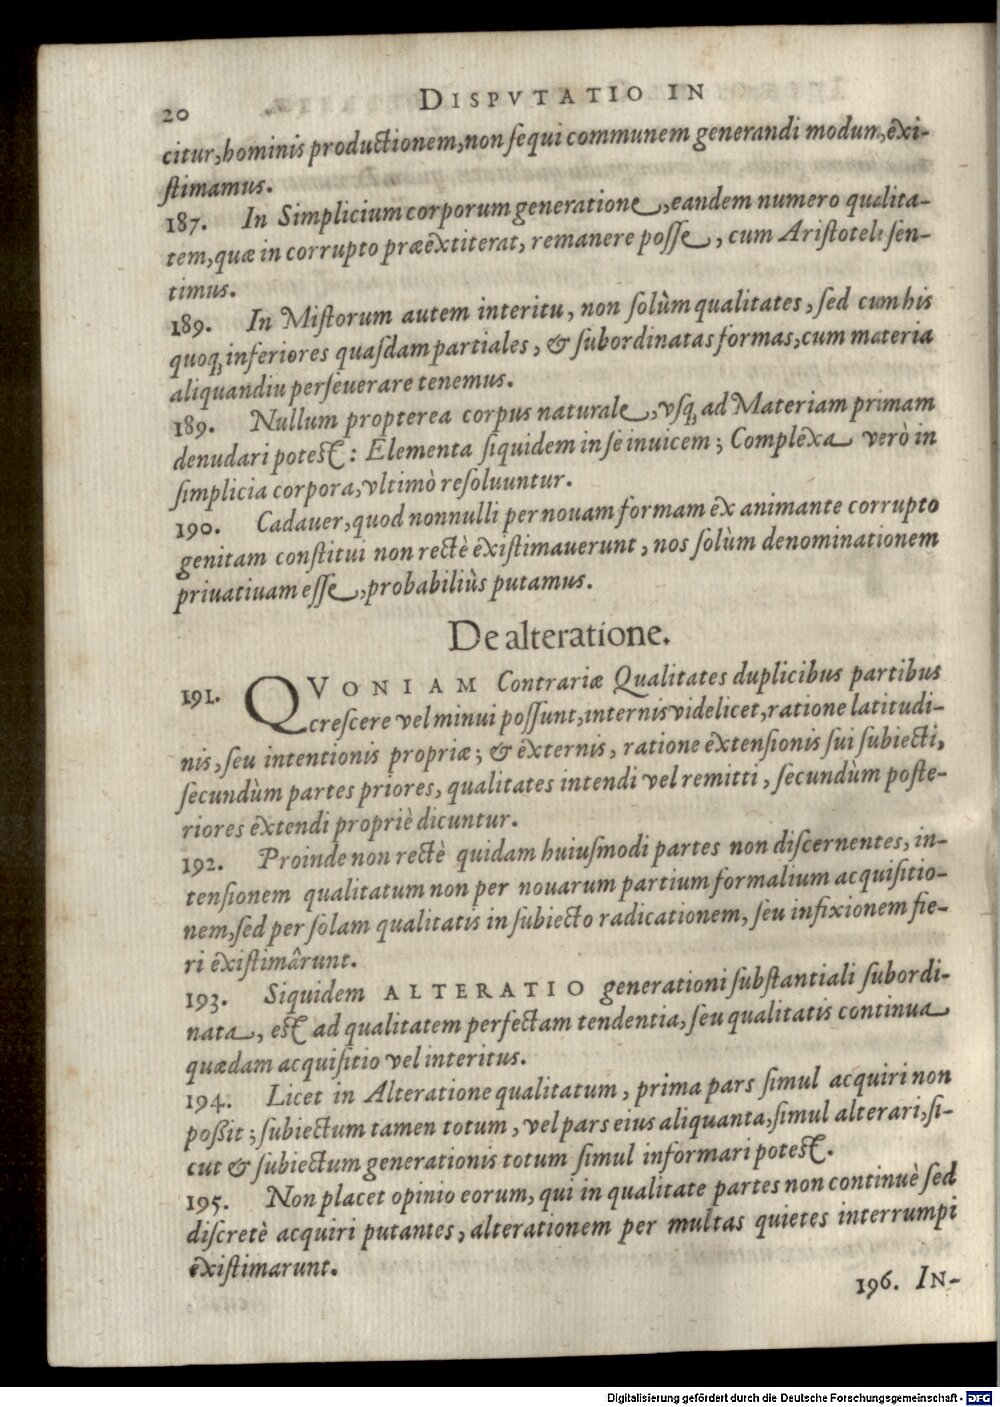 20
DISPVTATIO IN
citur, hominis productionem, non sequi communem generandi modum, exi-
stimamus.
187. In Simplicium corporum generatione, eandem numero qualita-
tem, quæ in corrupto præextiterat, remanere posse, cum Aristotele sen-
timus.
189. In Mistorum autem interitu, non solùm qualitates, sed cum his
quoq; inferiores quasdam partiales, & subordinatas formas, cum materia
aliquandiu perseuerare tenemus.
189. Nullum propterea corpus naturale, vsq; ad Materiam primam
denudari potest: Elementa siquidem in se inuicem; Complexa verò in
simplicia corpora, vltimò resoluuntur.
190. Cadauer, quod nonnulli per nouam formam ex animante corrupto
genitam constitui non rectè existimauerunt, nos solùm denominationem
priuatiuam esse, probabiliùs putamus.
De alteratione.
191. QVONIAM Contrariæ Qualitates duplicibus partibus
crescere vel minui possunt, internis videlicet, ratione latitudi-
nis, seu intentionis propriæ; & externis, ratione extensionis sui subiecti,
secundùm partes priores, qualitates intendi vel remitti, secundùm poste-
riores extendi propriè dicuntur.
192. Proinde non rectè quidam huiusmodi partes non discernentes, in-
tensionem qualitatum non per nouarum partium formalium acquisitio-
nem, sed per solam qualitatis in subiecto radicationem, seu infixionem fie-
ri existimârunt.
193. Siquidem ALTERATIO generationi substantiali subordi-
nata, est ad qualitatem perfectam tendentia, seu qualitatis continua
quædam acquisitio vel interitus.
194. Licet in Alteratione qualitatum, prima pars simul acquiri non
poßit; subiectum tamen totum, vel pars eius aliquanta, simul alterari, si-
cut & subiectum generationis totum simul informari potest.
195. Non placet opinio eorum, qui in qualitate partes non continuè sed
discretè acquiri putantes, alterationem per multas quietes interrumpi
existimarunt.
196. IN-
Digitalisierung gefördert durch die Deutsche Forschungsgemeinschaft - DFG